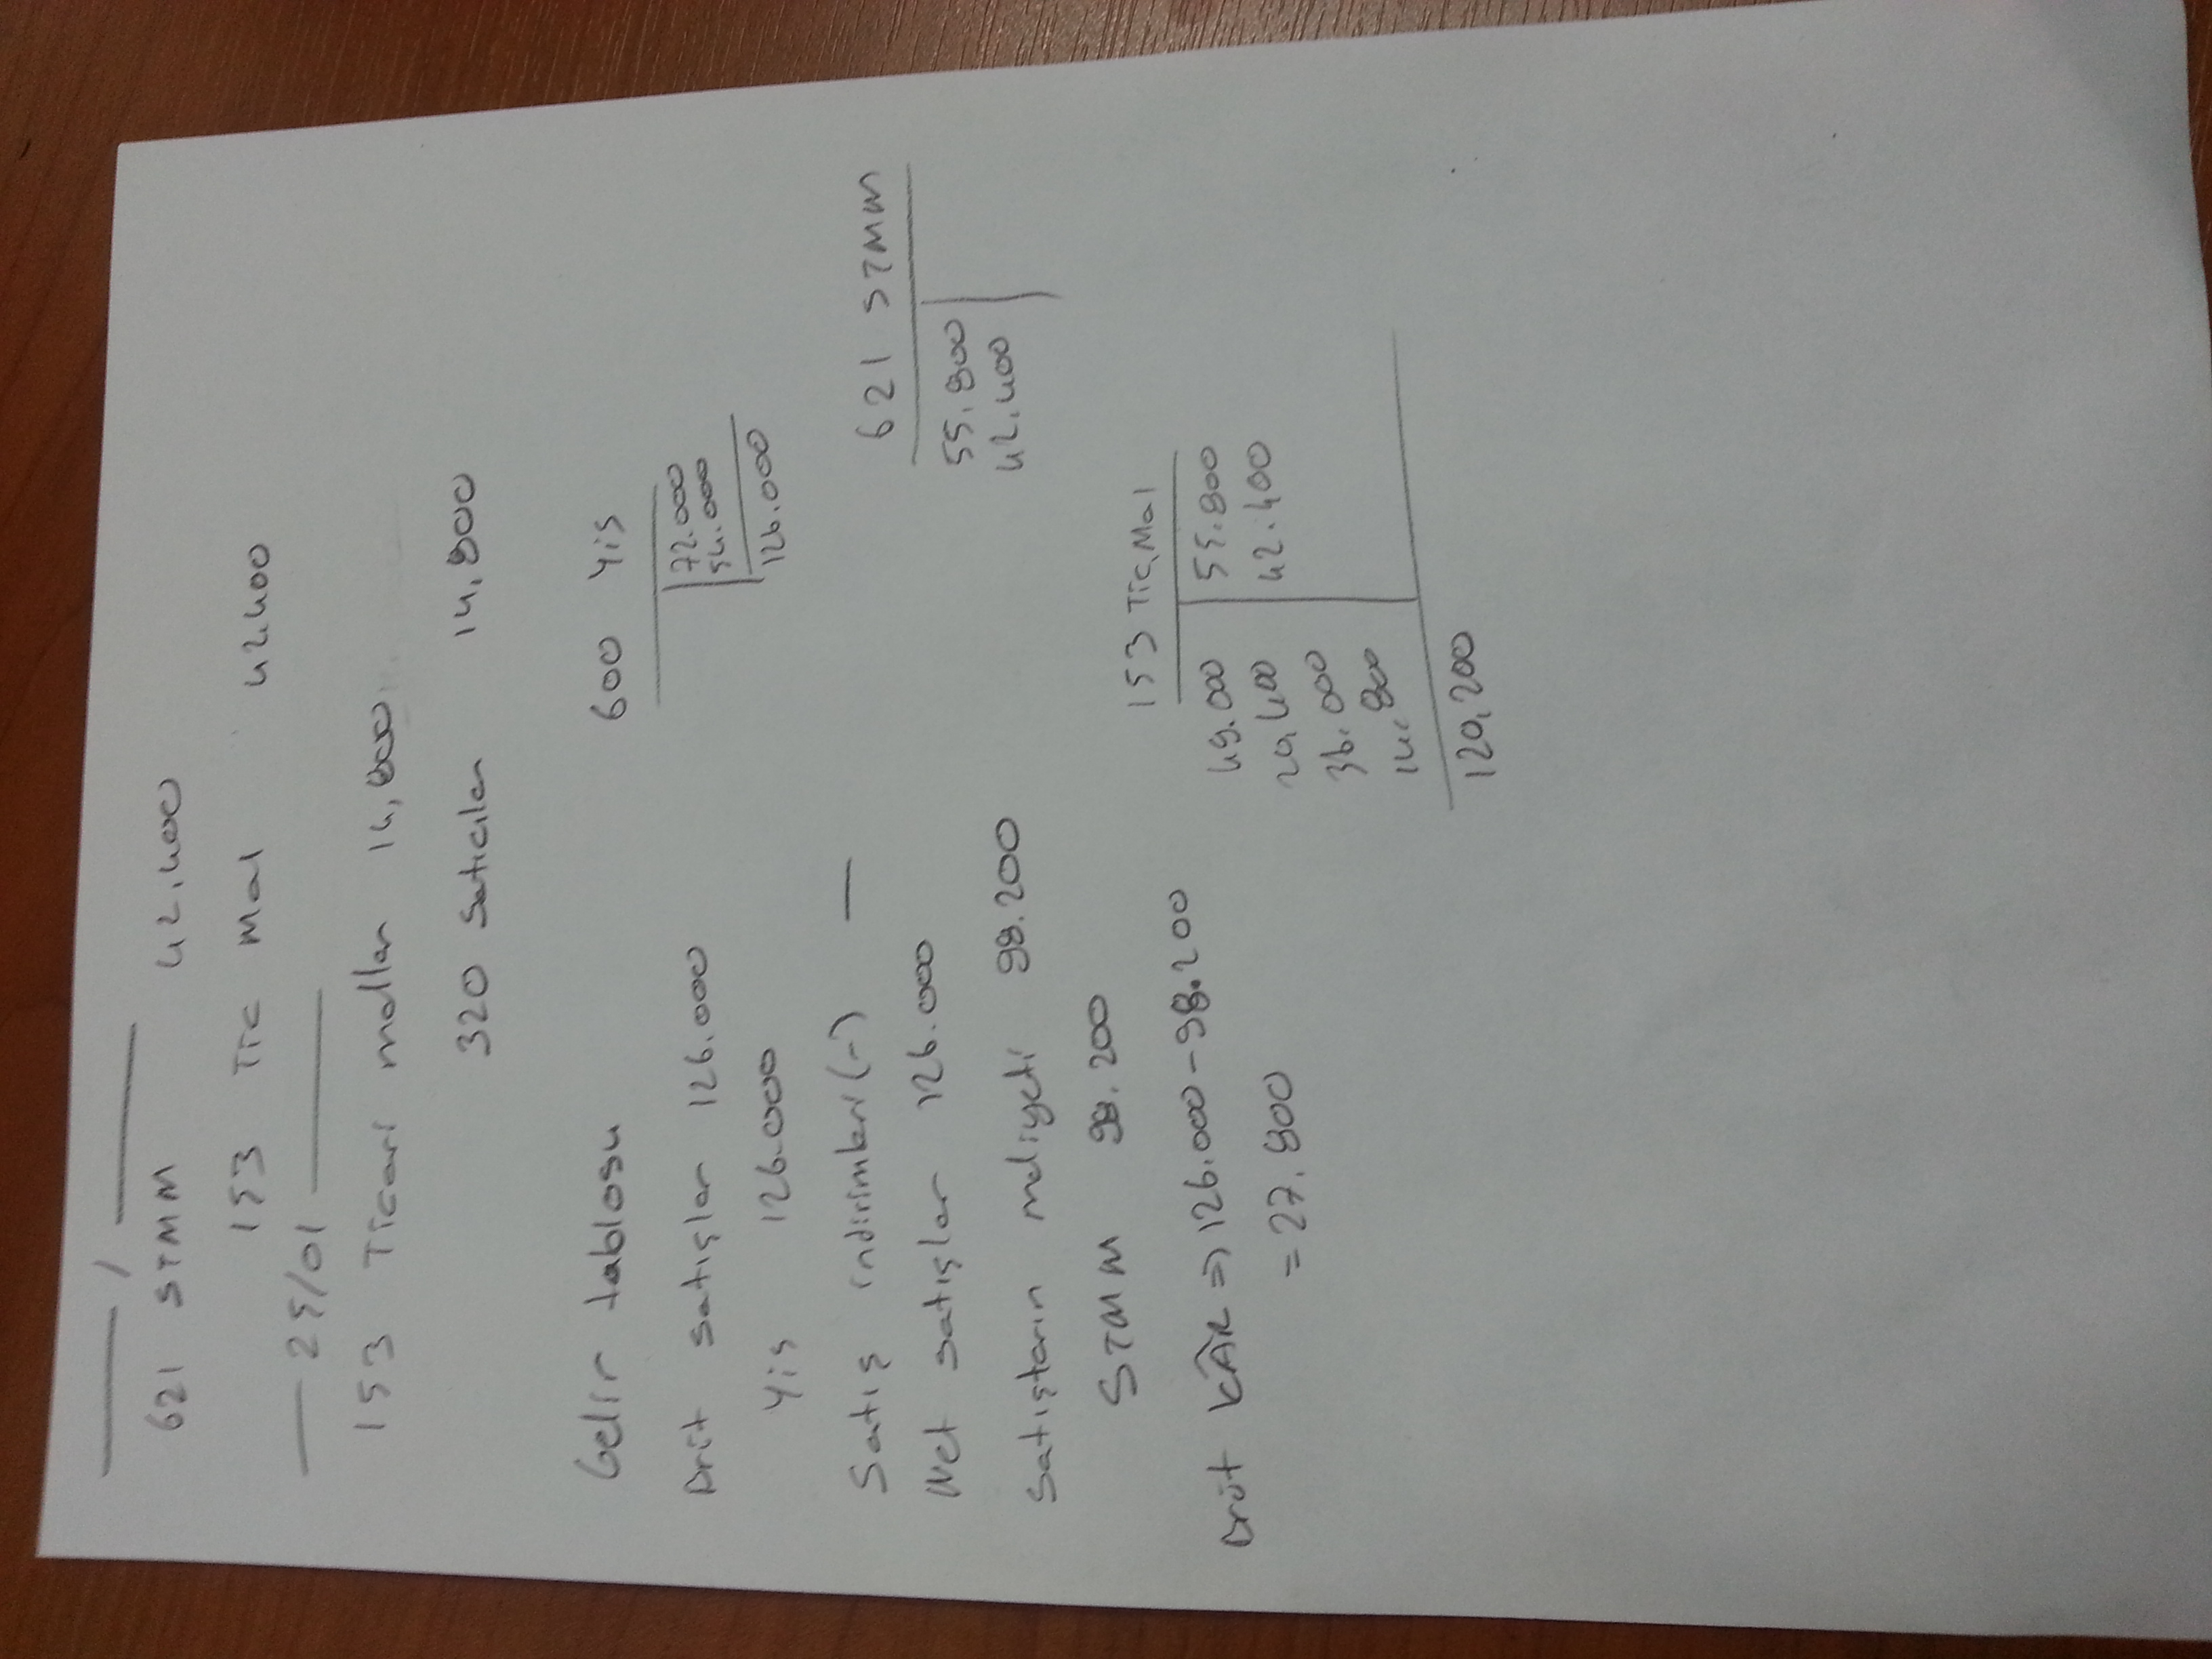 /
621 STMM 42.400
153 Tic Mal 42.400
25/01
153 Ticari mallar 14,800
320 Satıcılar 14,800
Gelir tablosu
Brüt satışlar 126.000
Yis 126.000
Satış indirimleri (-) —
Net satışlar 126.000
Satışların maliyeti 98.200
STMM 98.200
Brüt KÂR => 126.000 - 98.200
= 27.800
600 Yis
72.000
54.000
126.000
621 STMM
55.800
42.400
153 Tic, Mal
49.000 55.800
20,400 42.400
36.000
14.800
120,200